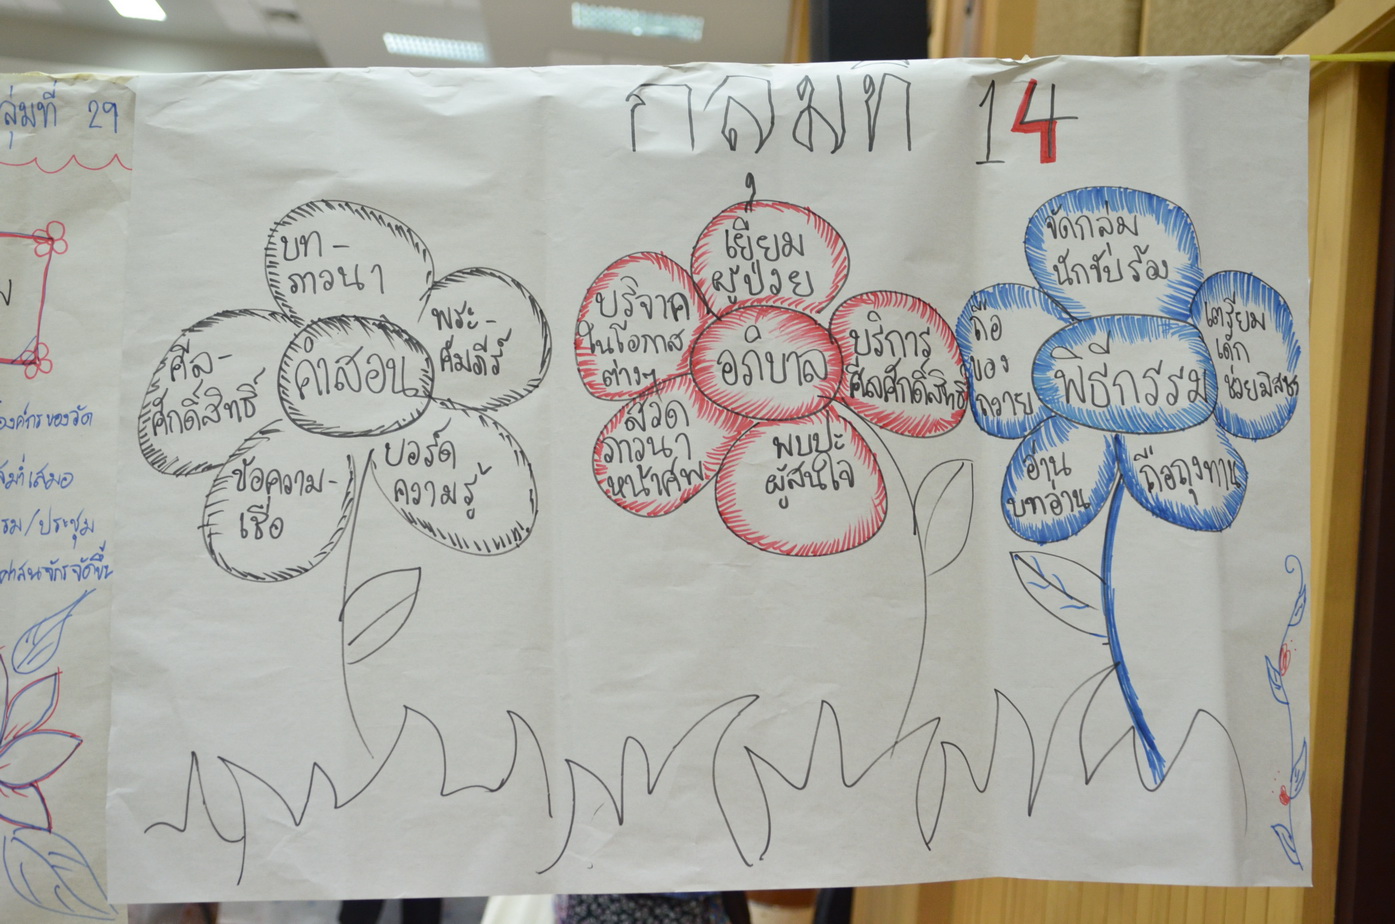 ลุ่มที่ 29
องค์กรของวัด
สม่ำเสมอ
รม/ประชุม
ศาสนจักรจัดขึ้น
กลุ่มที่ 14
คำสอน
บท-
ภาวนา
พระ-
คัมภีร์
บอร์ด
ความรู้
ข้อความ-
เชื่อ
ศีล-
ศักดิ์สิทธิ์
อภิบาล
เยี่ยม
ผู้ป่วย
บริการ
ศีลศักดิ์สิทธิ์
พบปะ
ผู้สนใจ
สวด
ภาวนา
หน้าศพ
บริจาค
ในโอกาส
ต่างๆ
พิธีกรรม
จัดกลุ่ม
นักขับร้อง
เตรียม
เด็ก
ช่วยมิสซา
ถือถุงทาน
อ่าน
บทอ่าน
ถือ
ของ
ถวาย